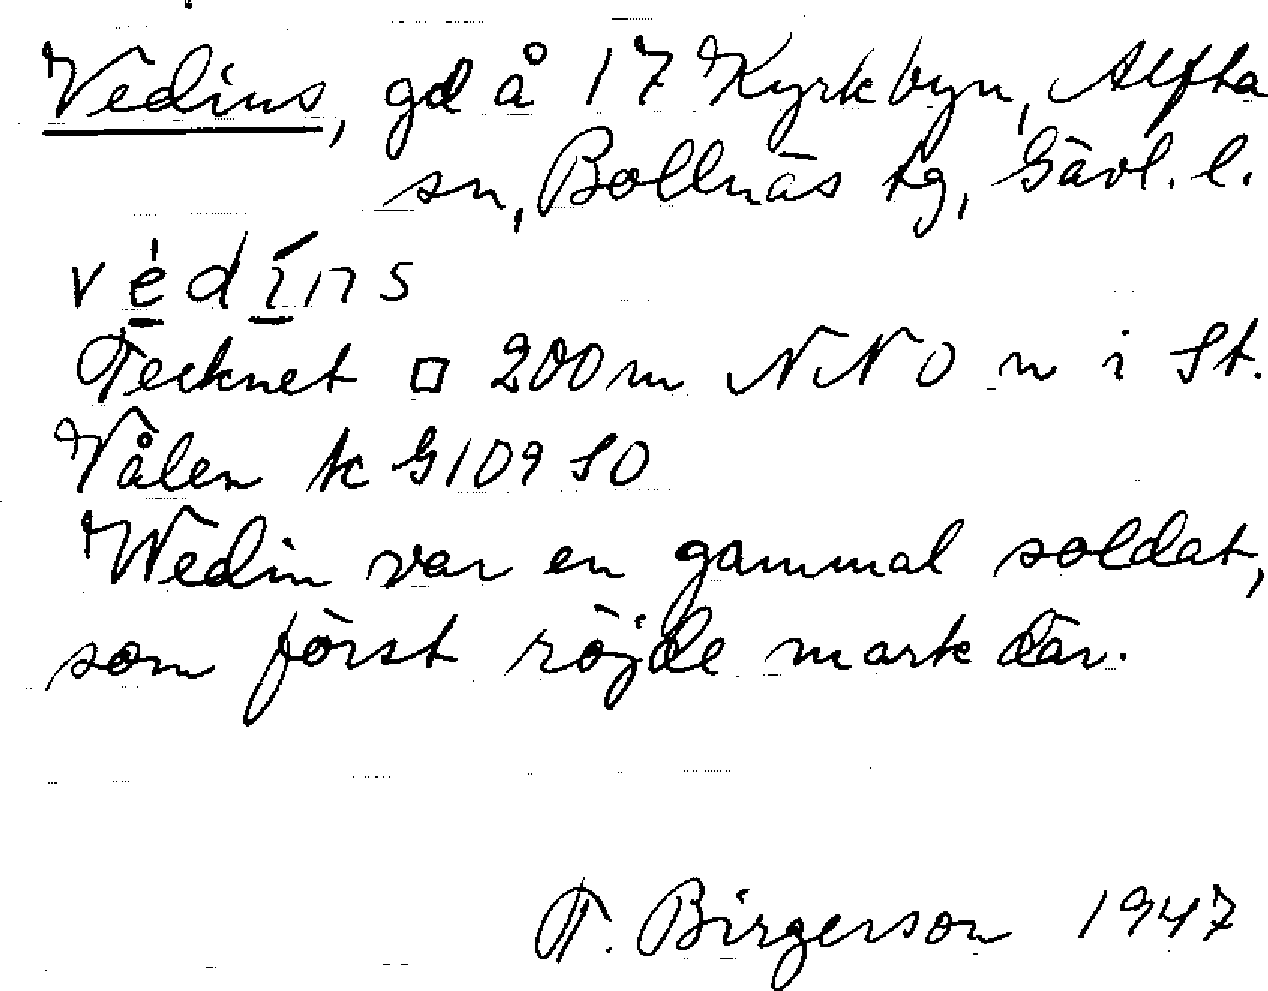 Vedins, gd å 17 Kyrkbyn, Alfta
sn, Bollnäs tg, Gävl. l.
védīns
Tecknet □ 200 m NNO n i St.
Vålen k G 109 SO
Wedin var en gammal soldat,
som först röjde mark där.
T. Birgerson 1947